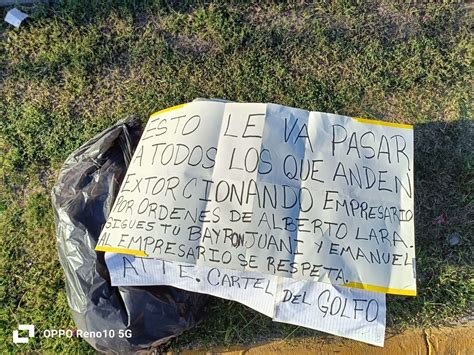 ESTO LE VA PASAR
A TODOS LOS QUE ANDEN
EXTORCIONANDO EMPRESARIO
POR ORDENES DE ALBERTO LARA.
SIGUES TU BAYRON JUANI Y EMANUEL
AL EMPRESARIO SE RESPETA.
ATTE. CARTEL DEL GOLFO.
OPPO Reno10 5G